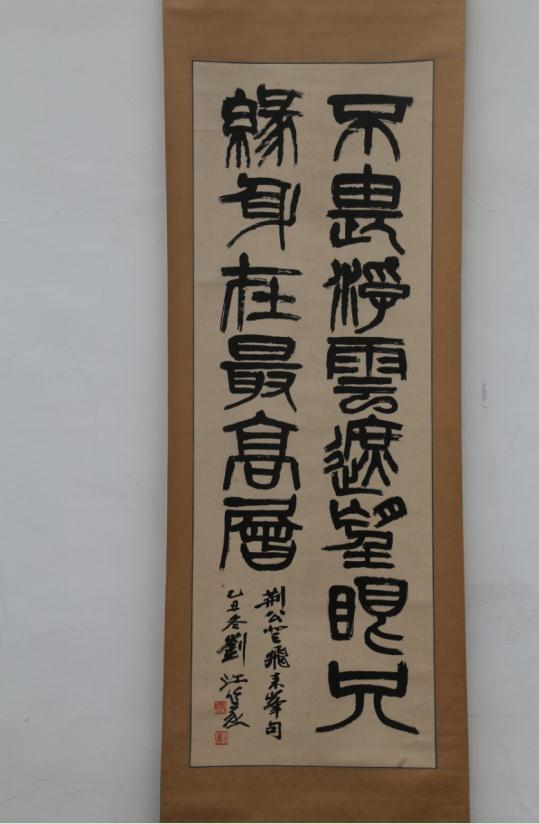 不畏浮雲遮望眼只
緣身在最高層
荆公登飛来峯句
乙丑冬劉江篆